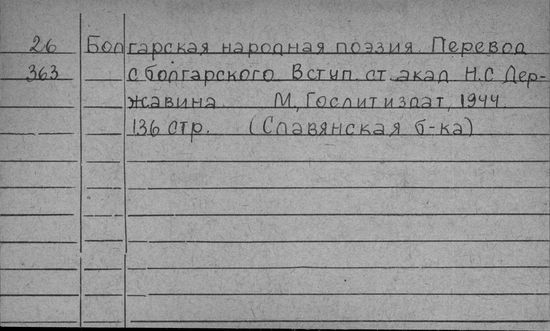 26 Болгарская народная поэзия. Перевод
363 с болгарского. Вступ. ст. акад. Н.С. Дер-
жавина. М., Гослитиздат, 1944.
136 стр. (Славянская б-ка)